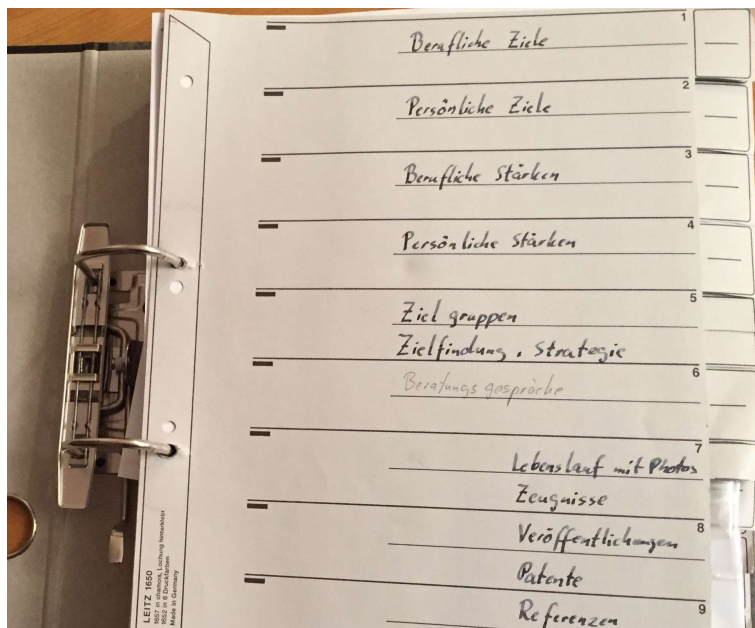 1
Berufliche Ziele
2
Persönliche Ziele
3
Berufliche Stärken
4
Persönliche Stärken
5
Zielgruppen
Zielfindung, Strategie
6
Beratungsgespräche
7
Lebenslauf mit Photos
Zeugnisse
8
Veröffentlichungen
Patente
9
Referenzen
LEITZ 1650
1657 in chamois, Lochung hinterklebt
1652 in 6 Druckfarben
Made in Germany